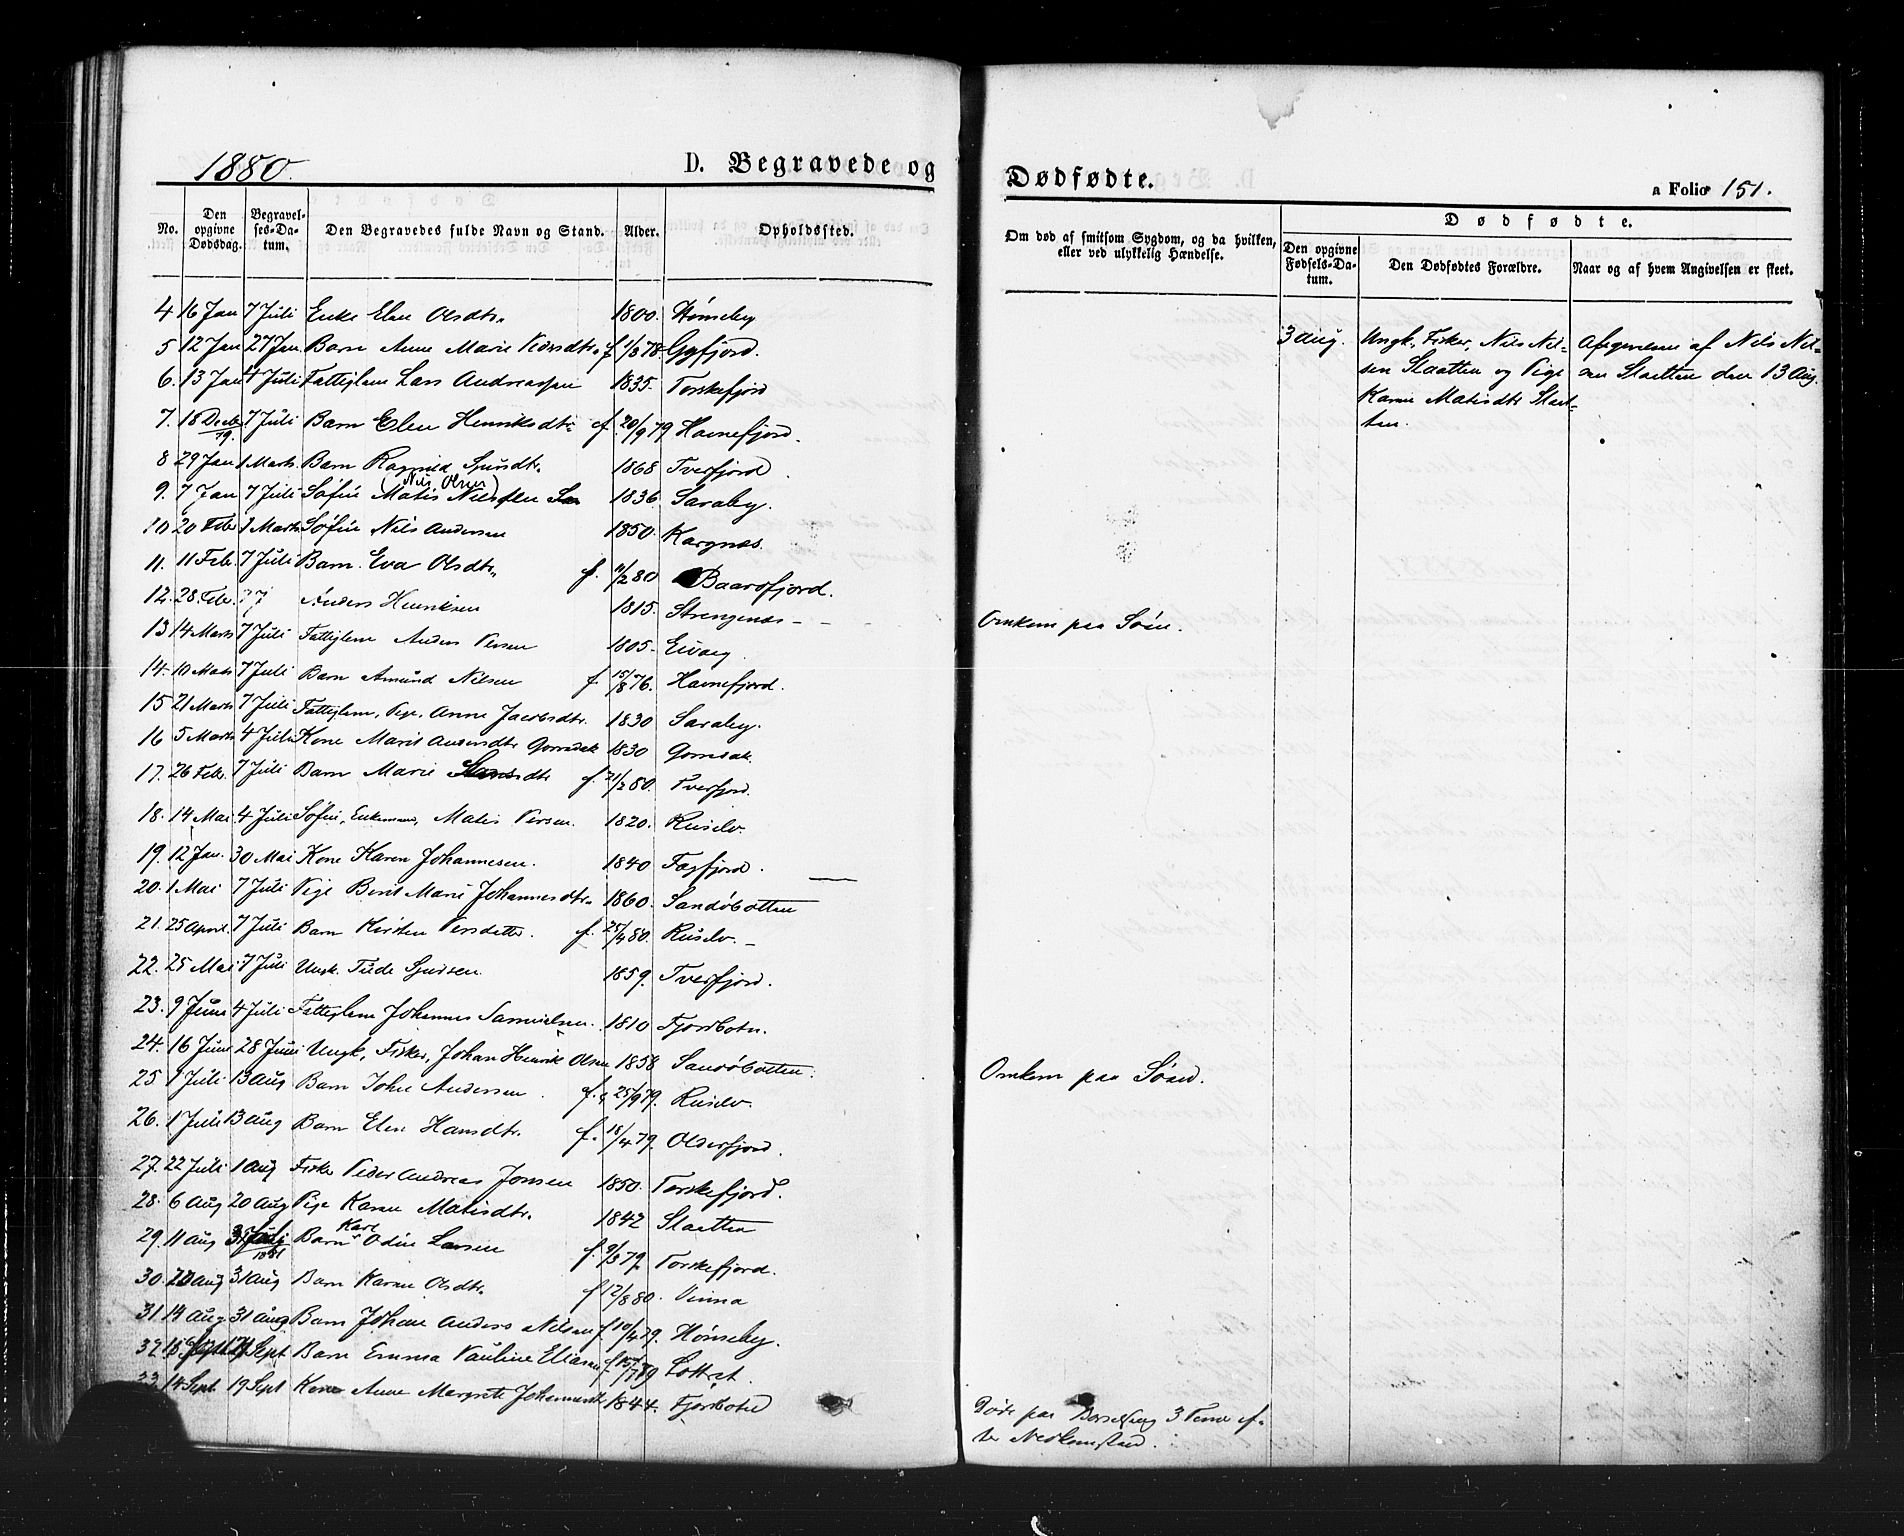 1880.
D. Begravede og
No.
Den opgivne Dødsdag.
Begravelses-Datum.
Den Begravedes fulde Navn og Stand.
Alder.
Opholdssted.
4 16 Jan 7 Juli Enke Elen Olsdtr. 1800. Hønseby
5 12 Jan 27 Jan. Barn Anne Marie Pedersdtr. f 1/3 78 Gyfjord.
6. 13 Jan 4 Juli Fattiglem Lars Andreassen 1835. Torskefjord
7. 18 Decbr 79. 7 Juli Barn Elen Henriksdtr. f. 20/9 79 Havnefjord.
8 29 Jan 1 Marts Barn Ragnild Sjursdtr. 1868 Tverfjord
(Nils Olsen)
9. 7 Jan 7 Juli Søfin Matis Nilssen 1836 Saraby.
10 20 Feb 1 Marts Søfin Nils Andersen 1850. Kargnæs.
11. 11 Feb. 7 Juli Barn. Eva Olsdtr. f. 11/2 80 Baarsfjord.
12. 28 Feb. 7/7 Anders Henriksen 1815. Strengenæs - - -
13 14 Marts 7 Juli Fattiglem Anders Persen 1805. Eivaag.
14. 10 Mats 7 Juli Barn Amund Nilsen f. 15/8 76. Havnefjord.
15 21 Marts 7 Juli Fattiglem, Pige, Anne Jacobsdtr. 1830 Saraby.
16 5 Marts 4 Juli Kone Marit Gomsdak 1830 Gomsdak.
17. 26 Feb. 7 Juli Barn Marie Larsdtr f. 21/2 80. Tverfjord.
18. 14 Mai 4 Juli Søfin, Enkemand, Matis Persen. 1820. Ruselv.
19. 12 Jan. 30 Mai Kone Karen Johannesen. 1840 Fagfjord.
20. 1 Mai 7 Juli Pige Berit Marie Johannesdtr. 1860. Sandøbotten
21. 25 April. 7 Juli Barn Kirsten Persdatter. f. 25/4 80. Ruselv. -
22. 25 Mai 7 Juli Ungk. Fude Sjursen. 1859. Tverfjord.
23. 9 Juni 4 Juli Fattiglem Johannes Samuelsen. 1810 Fjordbotn.
24. 16 Juni 28 Juni Ungk, Fisker, Johan Henrik Olsen 1858 Sandøbotten.
25 1 Juli 13 Aug Barn John Andersen. f. 25/9 79. Ruselv.
26. 1 Juli 13 Aug Barn Elen Hansdtr. f. 18/4 79. Olderfjord.
27. 22 Juli 1 Aug Fisker Peder Andreas Jonsen 1850. Torskefjord.
28. 6 Aug 20 Aug Pige Karen Matisdtr. 1842 Slaatten
29. 11 Aug 31 Juli 1881 Barn Karl Odin Larsen f. 9/3 79. Torskefjord.
30. 20 Aug 31 Aug Barn Karen Olsdtr. f 12/8 80. Vinna
31 14 Aug 31 Aug Barn Johan Anders Nilsen f. 10/4 79. Hønseby.
32 Sept Sept Barn Emma Pauline Eliasen f Lottret.
33. 14 Sept. 19 Sept Kone Anne Margrete 1844. Fjordbotn
Dødfødte.
a Folio 151.
Om død af smitsom Sygdom, og da hvilken, eller ved ulykkelig Hændelse.
Dødfødte.
Den opgivne Fødsels-Datum.
Den Dødfødtes Forældre.
Naar og af hvem Angivelsen er skeet.
3 Aug. Ungk, Fisker, Nils Nil- Angivelse af Nils Nil-
sen Slaatten og Pige sen Slaatten den 13 Aug.
Karen Matisdtr Slaat-
ten.
Omkom paa Søen.
Omkom paa Søen.
Døde paa 3 Timer ef-
ter Nedkomsten.